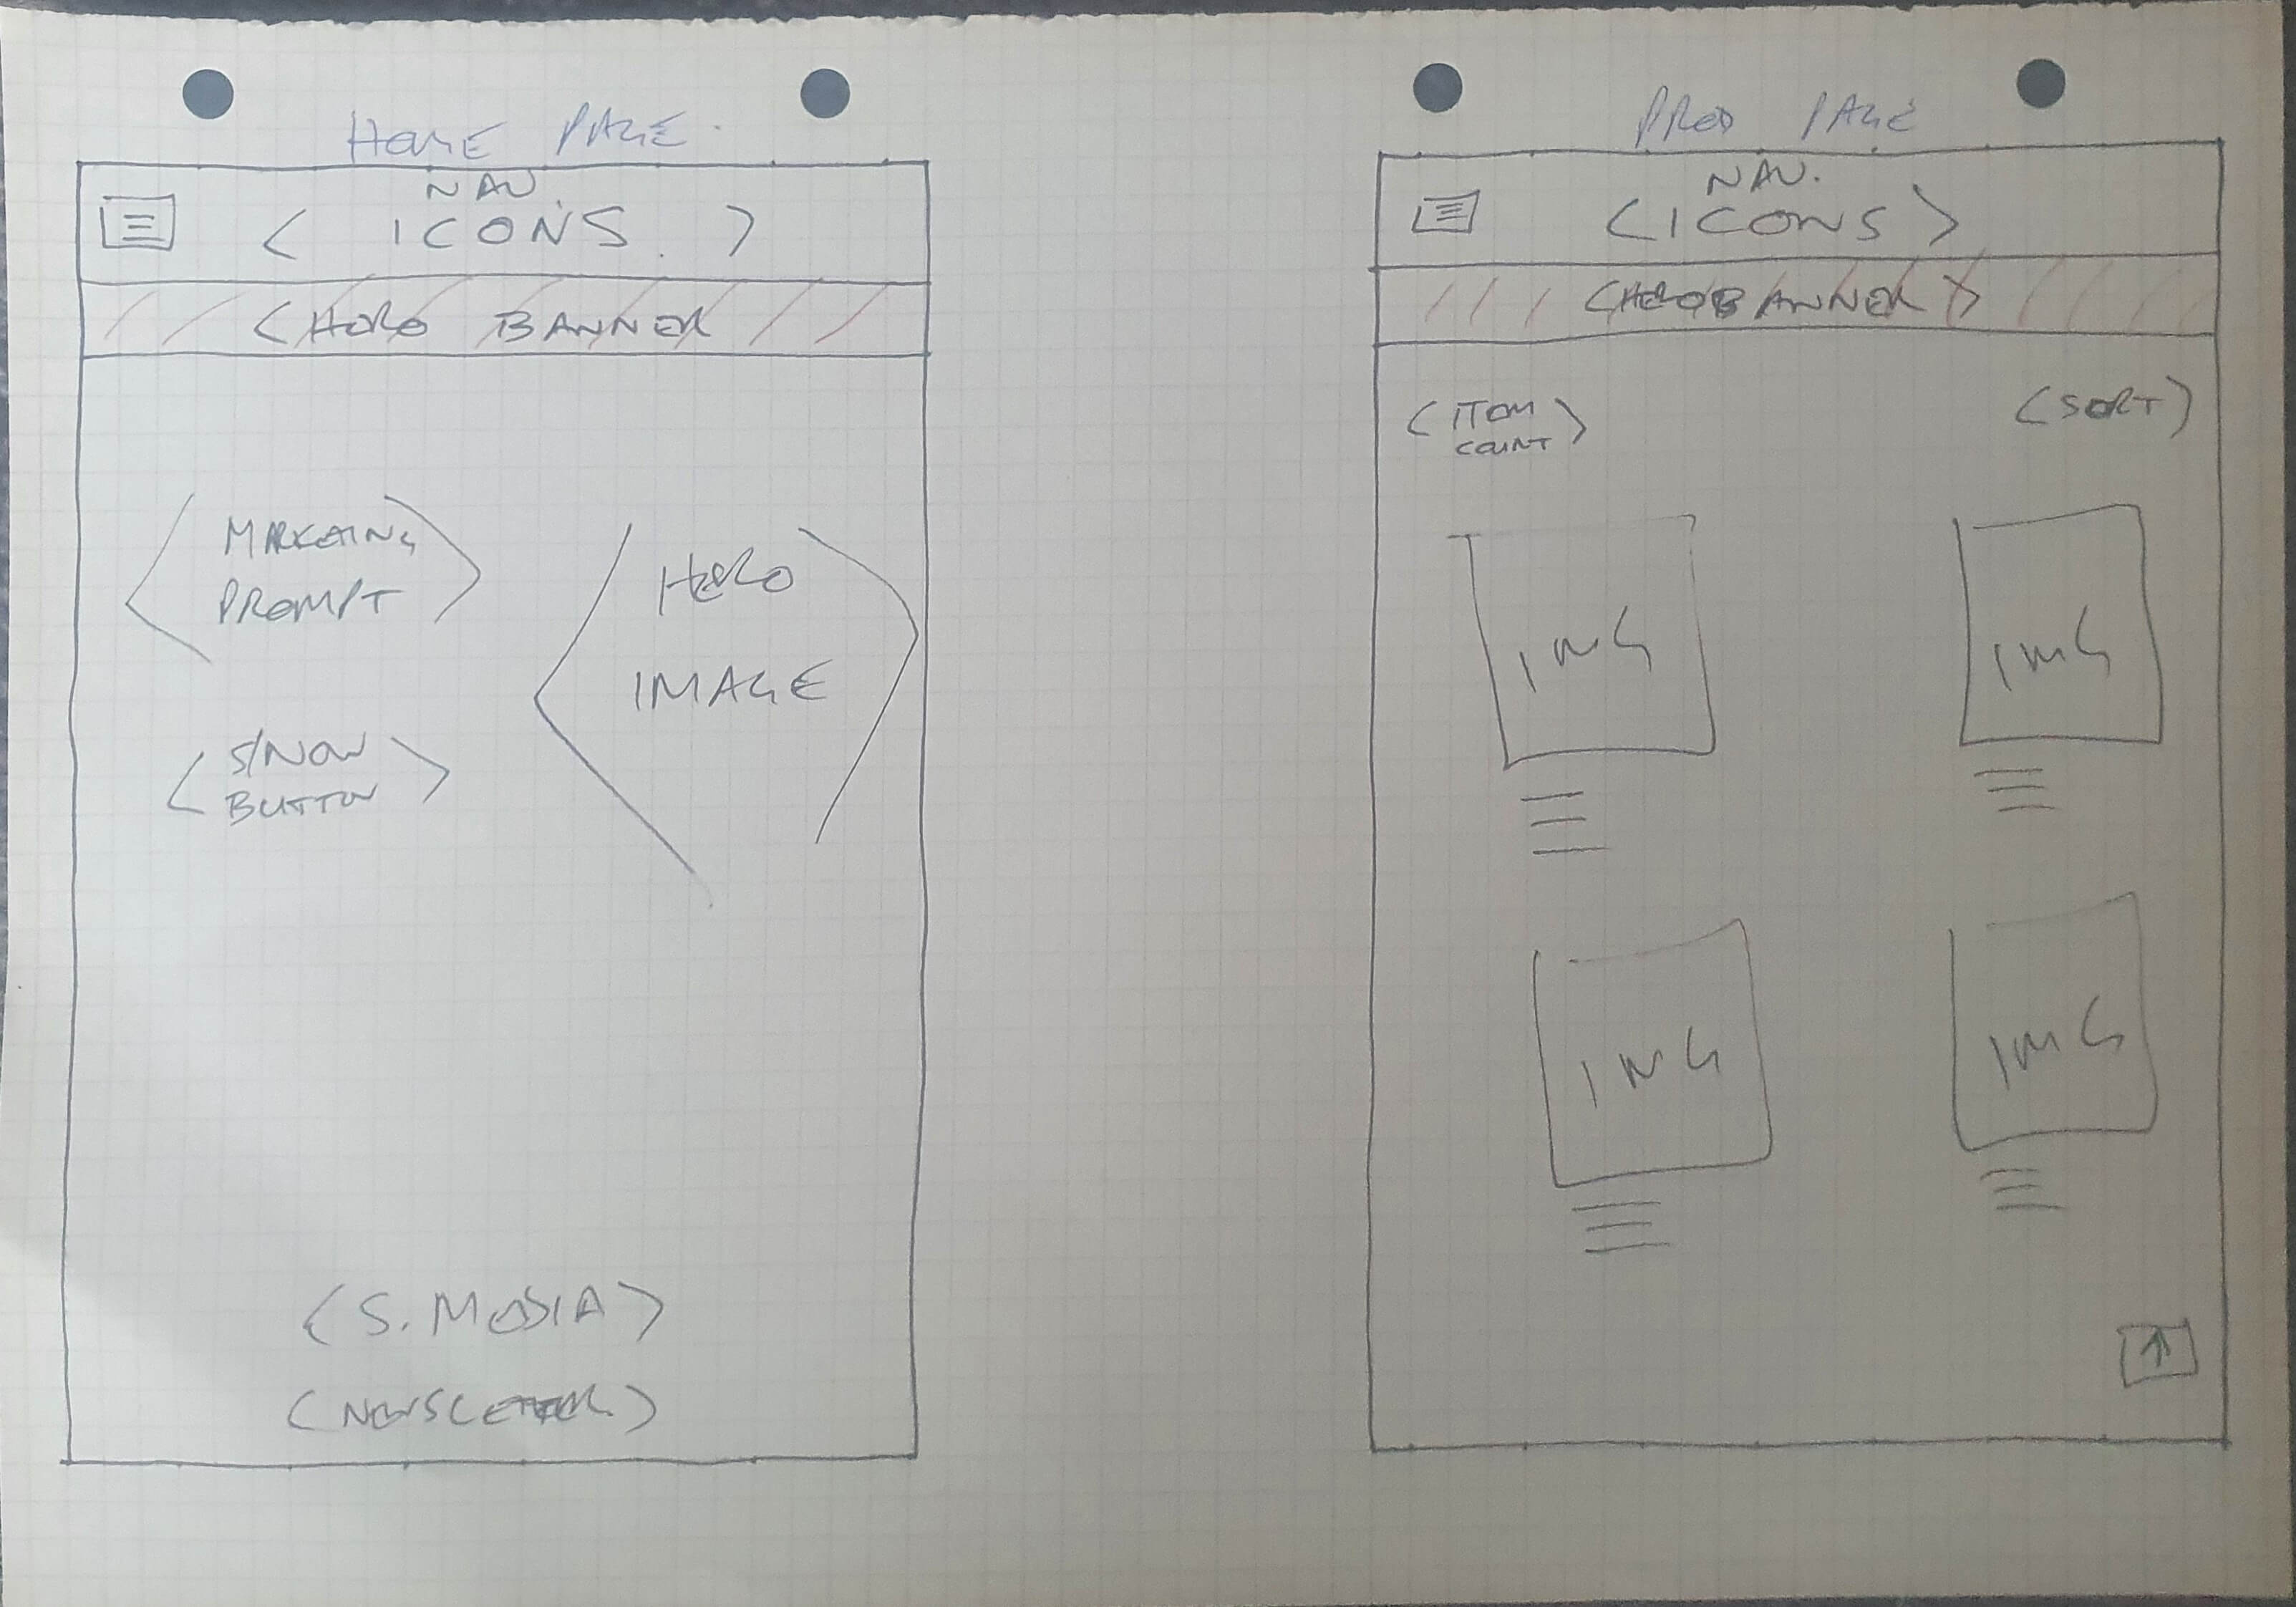 HOME PAGE.
NAV.
< ICONS. >
<HERO BANNER
<MARKETING
PROMPT>
<S/NOW
BUTTON>
<HERO
IMAGE>
<S. MEDIA>
(NEWSLETTER)
PROD PAGE
NAV.
<ICONS>
<HERO BANNER>
<ITEM
COUNT>
(SORT)
IMG
IMG
IMG
IMG